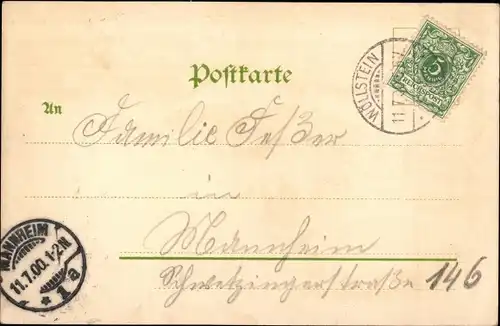 Postkarte
WÖLLSTEIN
11.7.
An
Familie Feßer
in
Mannheim
Schwetzingerstraße 146
MANNHEIM
11.7.00.1-2N
* 1 a
5